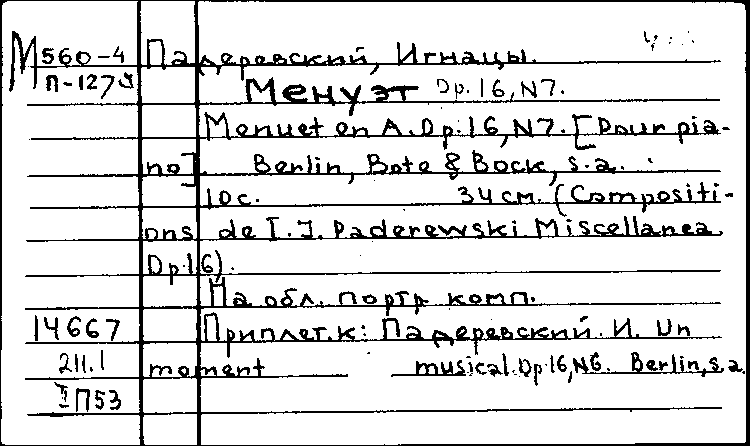 М 560-4 Падеревский, Игнацы.
П-127
Менуэт Op.16, N7.
Menuet en A. Op.16, N7. [Pour pia-
no]. Berlin, Bote & Bock, s.a.
10 с. 34 см. (Compositi-
ons de I. J. Paderewski Miscellanea
Op.16).
На обл. портр комп.
14667 Приплет. к: Падеревский. И. Un
211.1 moment musical. Op.16, N6. Berlin, s.a.
П53